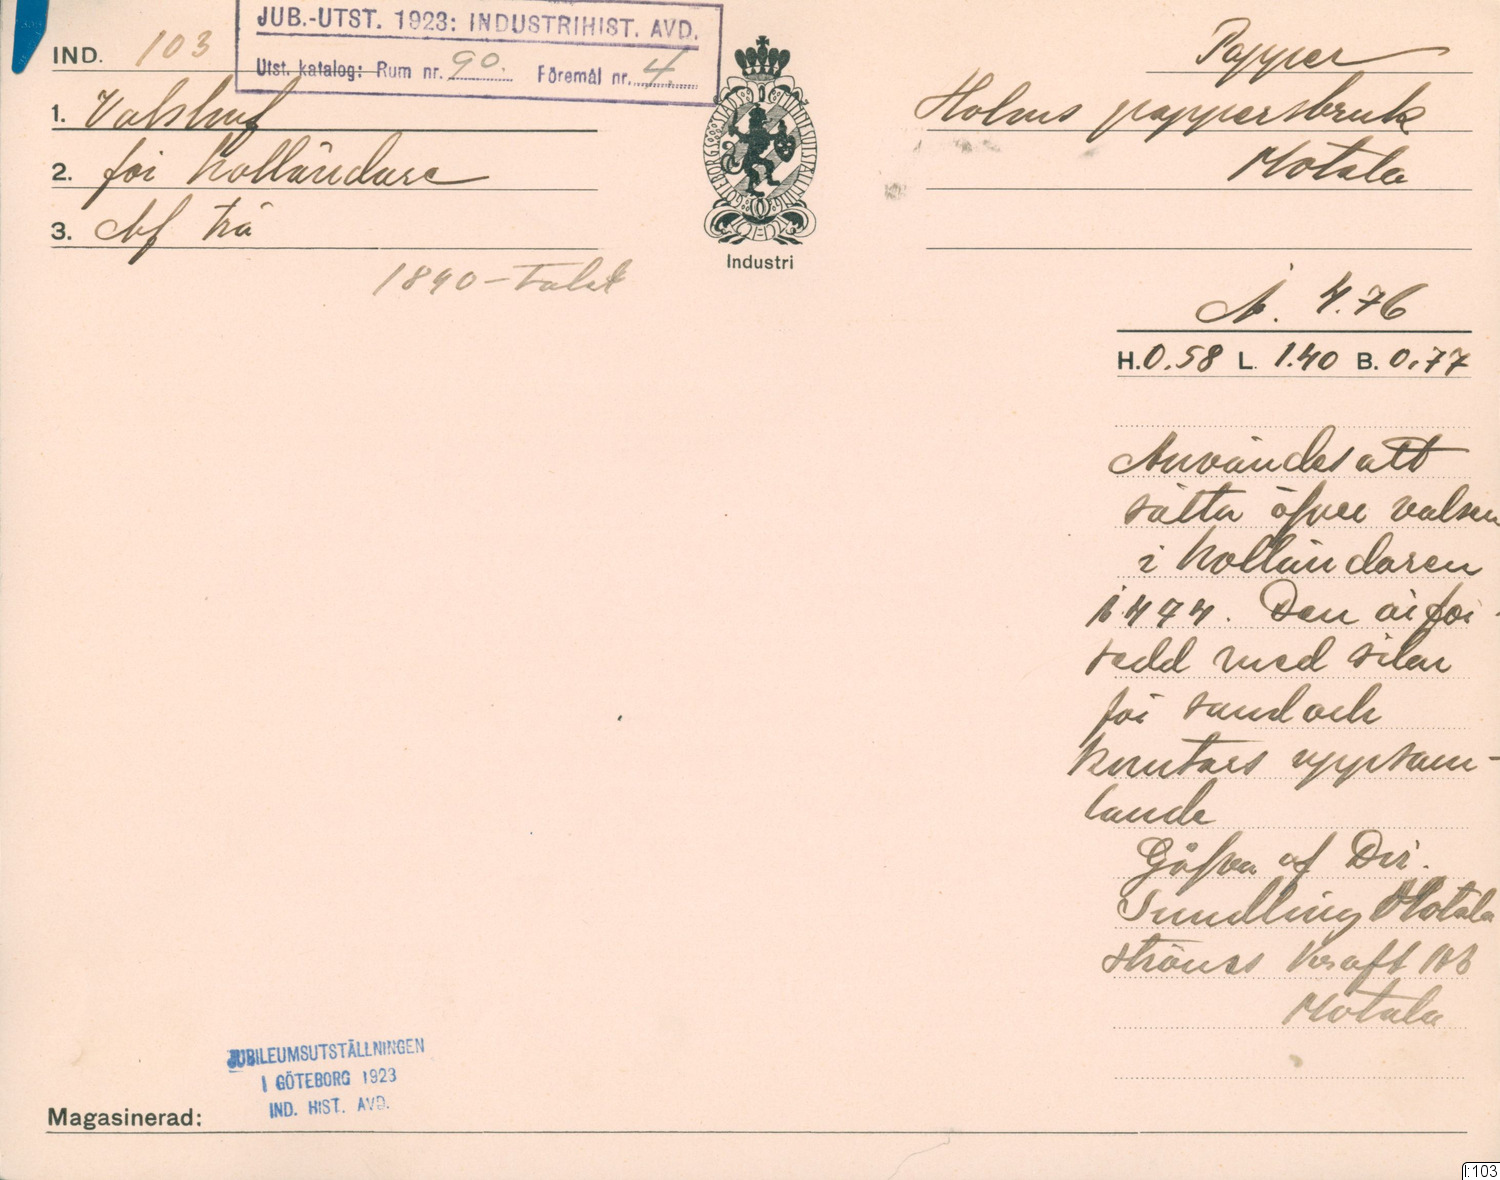 JUB.-UTST. 1923: INDUSTRIHIST. AVD.
Utst. katalog: Rum nr. 90. Föremål nr. 4
IND. 103
1. Valshuf
2. för holländare
3. Af trä
1890-talet
GÖTEBORGS STADS JUBILEUMSUTSTÄLLNING
Industri
Papper
Holms pappersbruk
Motala
N. 4.76
H. 0.58 L. 1.40 B. 0.77
Användes att
sätta öfver valsen
i holländaren
N. 474. Den är för-
sedd med silar
för sand och
knutars uppsam-
lande
Gåfva af Dir.
Sundling Motala
ströms Kraft AB
Motala
JUBILEUMSUTSTÄLLNINGEN
I GÖTEBORG 1923
IND. HIST. AVD.
Magasinerad:
I:103